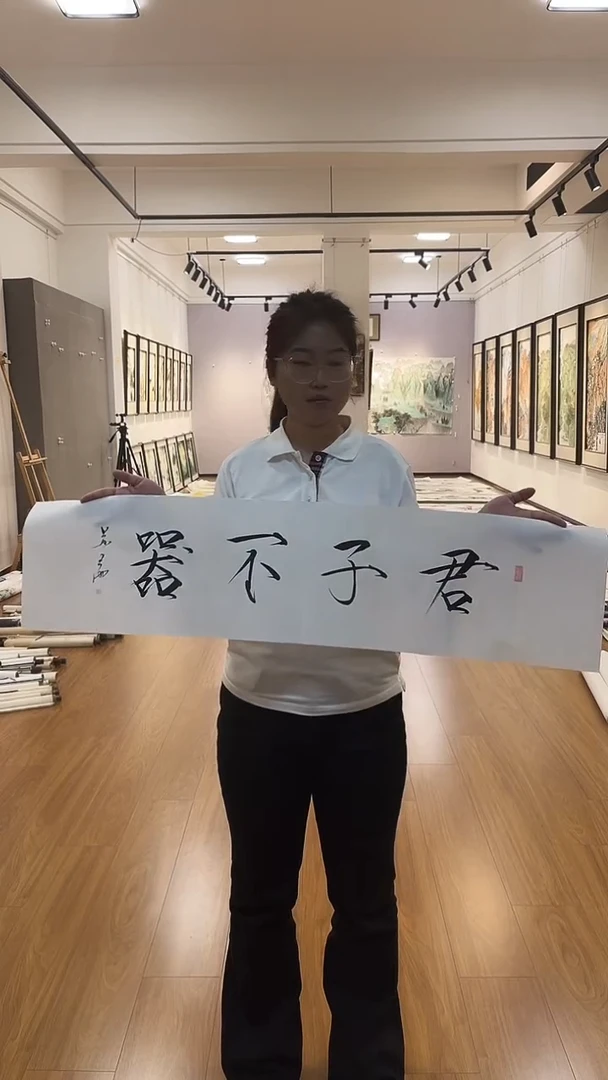 君子不器